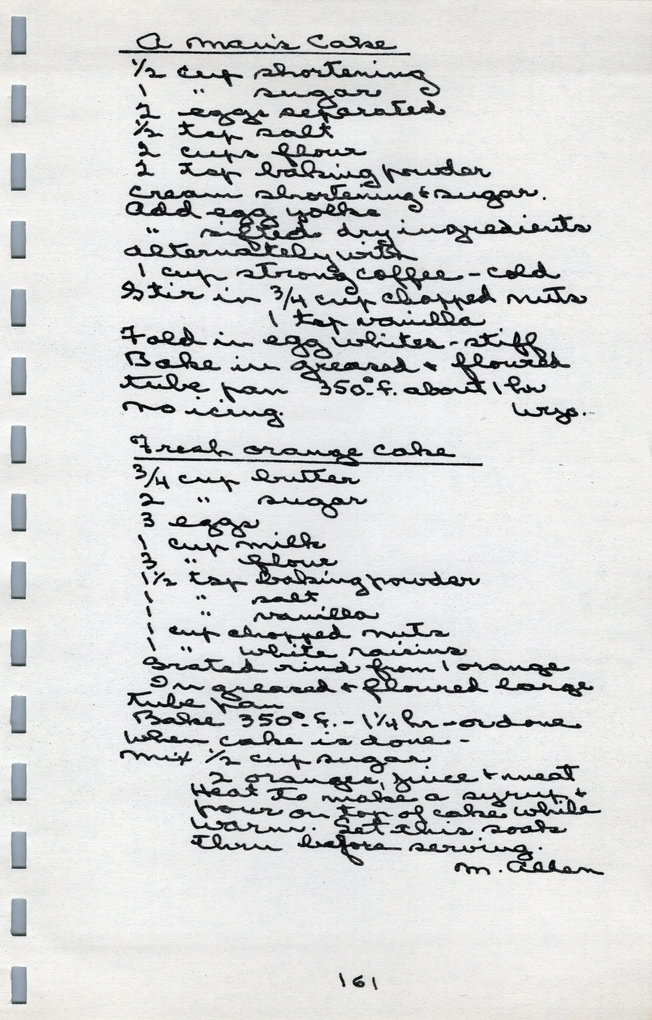 A Man's Cake
1/2 cup shortening
1 " sugar
2 eggs separated
1/2 tsp salt
2 cups flour
2 tsp baking powder
Cream shortening & sugar.
Add egg yolks
" sifted dry ingredients
alternately with
1 cup strong coffee - cold
Stir in 3/4 cup chopped nuts
1 tsp vanilla
Fold in egg whites - stiff
Bake in greased & floured
tube pan 350° f. about 1 hr
no icing.
Fresh Orange Cake
3/4 cup butter
2 " sugar
3 eggs
1 cup milk
3 " flour
1 1/2 tsp baking powder
1 " salt
1 " vanilla
1 cup chopped nuts
1 " white raisins
Grated rind from 1 orange
In greased & floured large
tube pan
Bake 350° f. - 1 1/4 hr - or done
When cake is done -
Mix 1/2 cup sugar
2 oranges, juice & meat
Heat to make a syrup &
pour on top of cake while
warm. Let this soak
thru before serving.
M. Allen
161